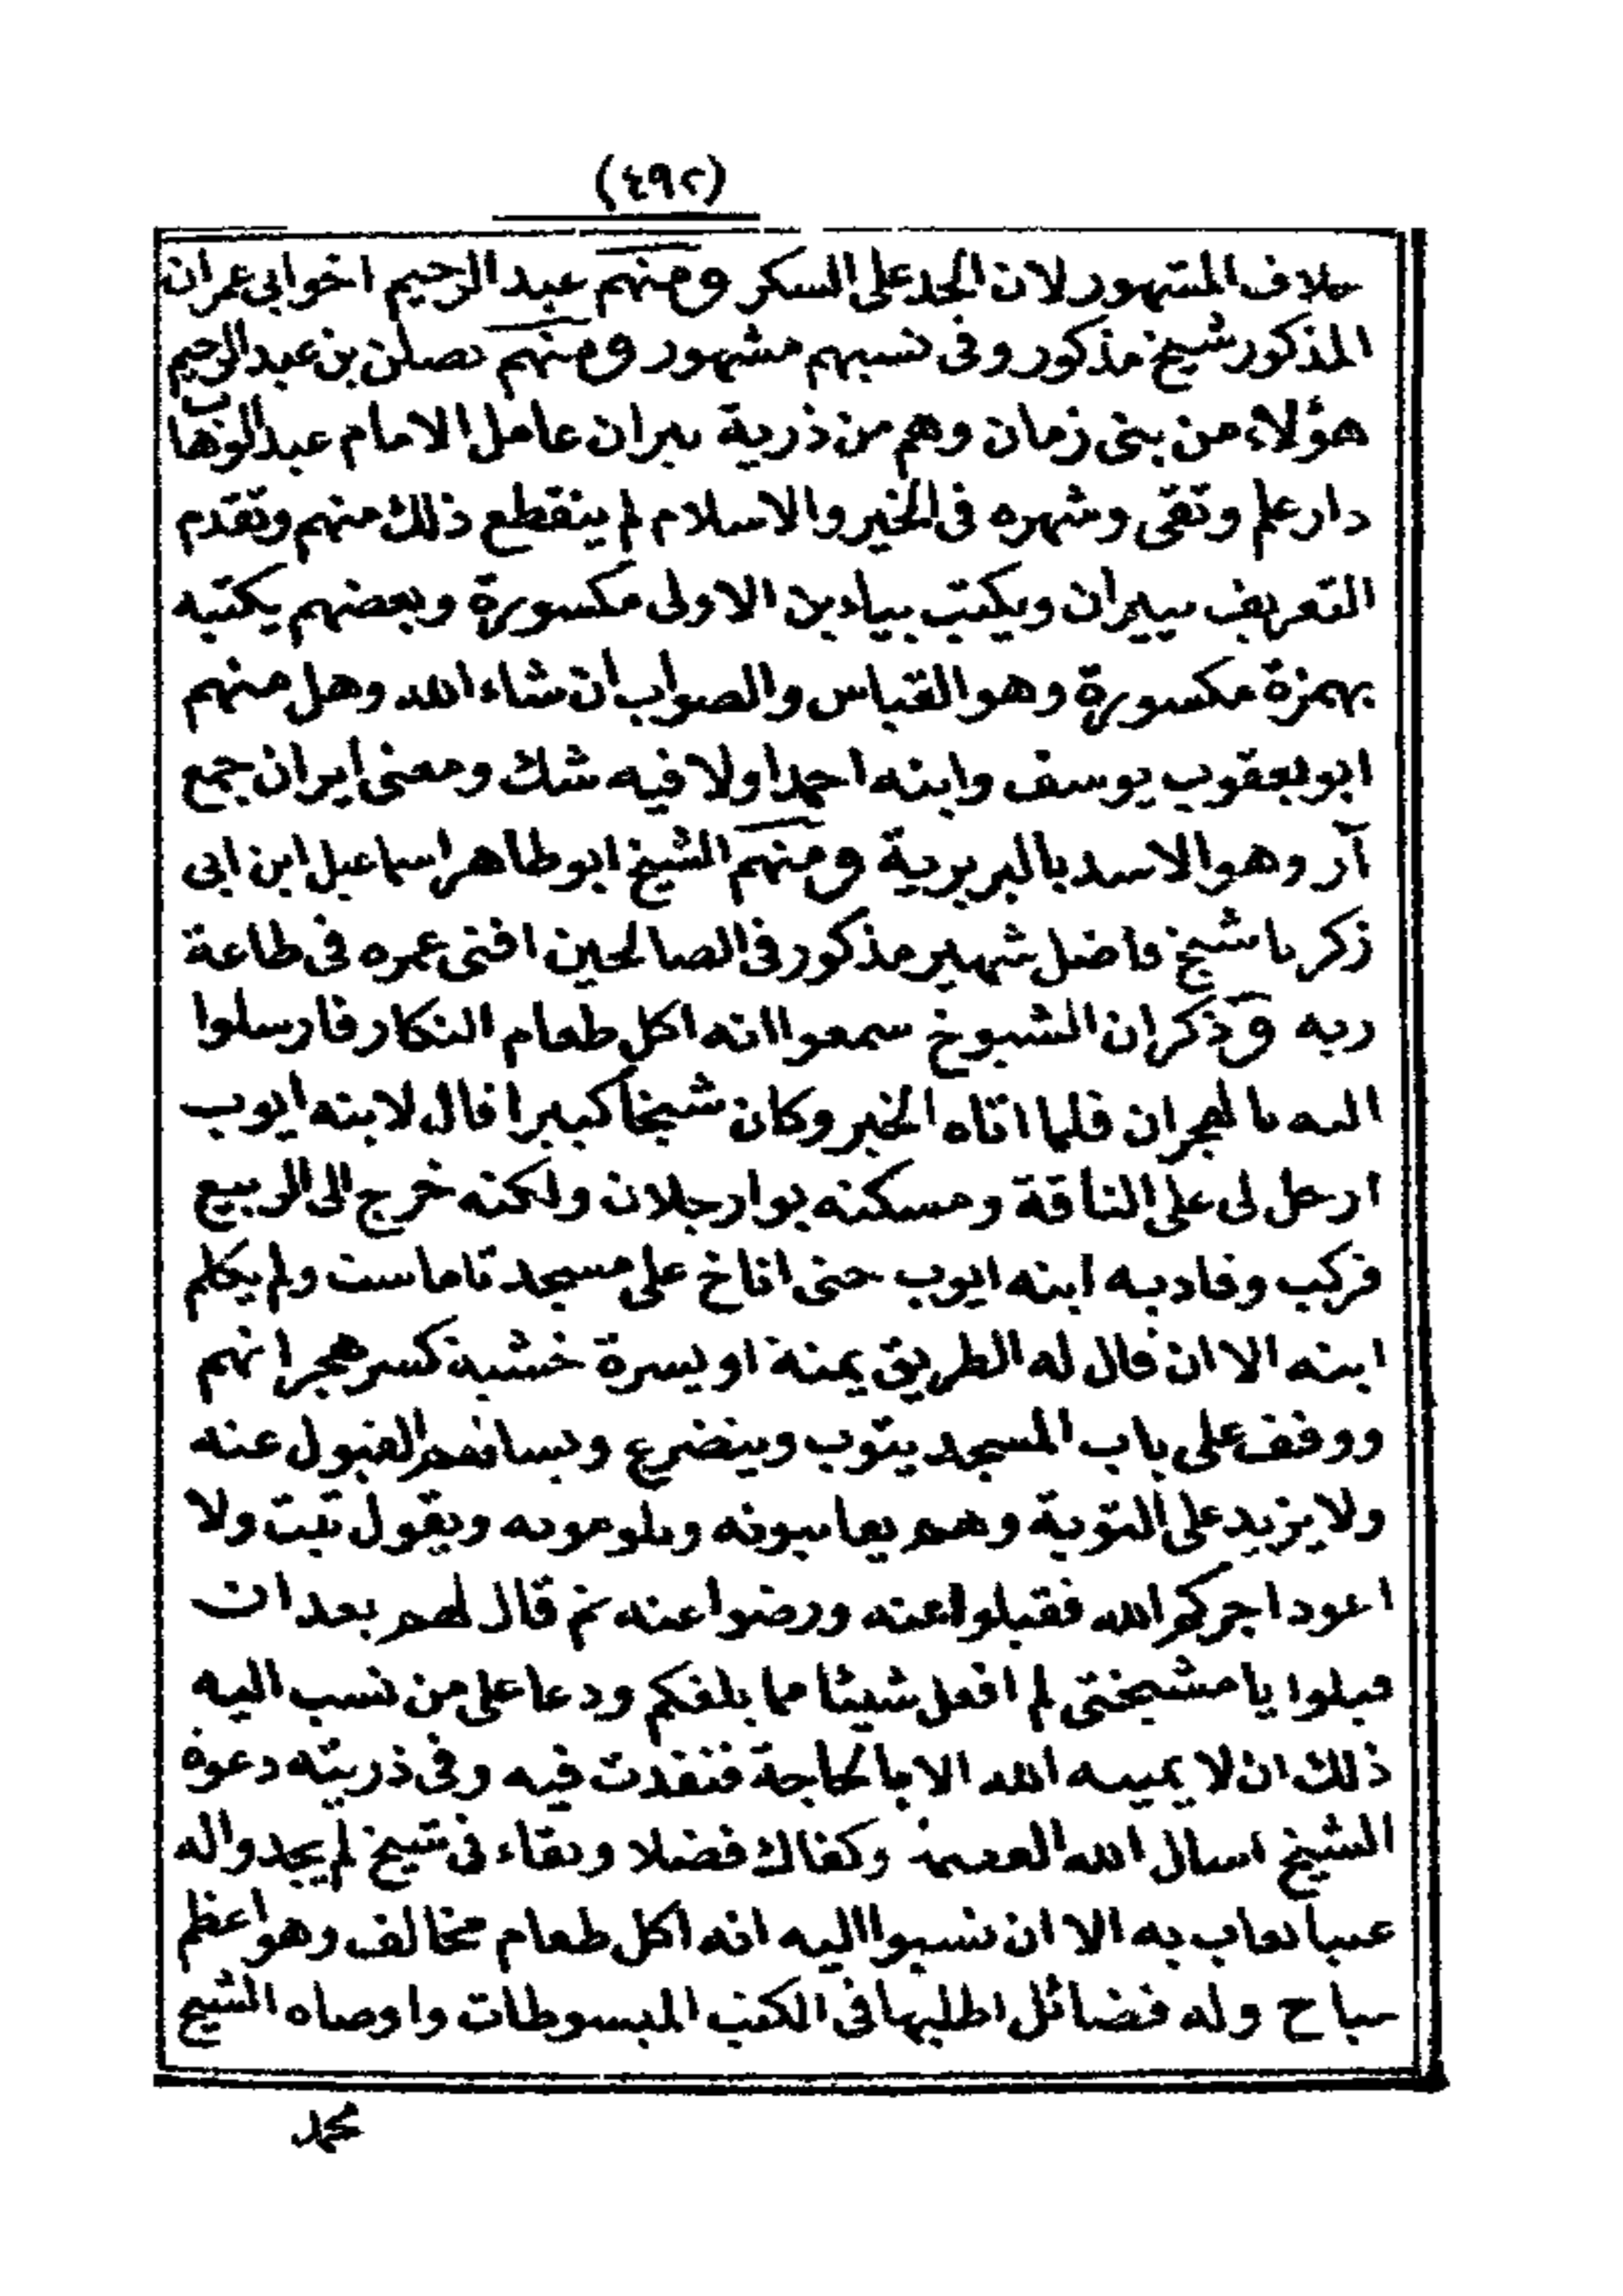 (٤٩٢)
خلاف المشهور لان الحد على السكر ومنهم عبد الرحيم اخو ابي عمران
المذكور شيخ مذكور وفي نسبهم مشهور ومنهم يصلتن بن عبد الرحيم
هؤلاء من بني زمان وهم من ذرية بيران عامل الامام عبد الوهاب
دار علم وتقى وشهره في الخير والاسلام لم ينقطع ذلك منهم وتقدم
التعريف بييران ويكتب بياءين الاولى مكسورة وبعضهم يكتبه
بهمزة مكسورة وهو القياس والصواب ان شاء الله وهل منهم
ابو يعقوب يوسف وابنه احمد اولا فيه شك ومعنى ايران جمع
آر وهو الاسد بالبربرية ومنهم الشيخ ابو طاهر اسماعيل ابن ابى
زكريا شيخ فاضل شهير مذكور في الصالحين افنى عمره في طاعة
ربه وذكر ان الشيوخ سمعوا انه اكل طعام النكار فارسلوا
اليه بالهجران فلما اتاه الخبر وكان شيخا كبيرا قال لابنه ايوب
ارحل لى على الناقة ومسكنه بوارجلان ولكنه خرج الى الربيع
فركب وقاد به ابنه ايوب حتى اناخ على مسجد تاماست ولم يكلم
ابنه الا ان قال له الطريق يمنة او يسرة خشية كسر هجرانهم
ووقف على باب المسجد يتوب ويتضرع ويسالهم القبول عنه
ولا يزيد على التوبة وهم يعاتبونه ويلومونه ويقول تبت ولا
اعود اجركم الله فقبلوا عنه ورضوا عنه ثم قال لهم بعد ان
قبلوا يا مشيختى لم افعل شيئا مما بلغكم ودعا على من نسب اليه
ذلك ان لا يميته الله الا بالحاجة فنفذت فيه وفى ذريته دعوة
الشيخ اسال الله العصمة وكفاك فضلا وتقاء في شيخ لم يجدوا له
عيبا يعاب به الا ان نسبوا اليه انه اكل طعام مخالف وهو اعظم
مباح وله فضائل اطلبها فى الكتب المبسوطات واوصاه الشيخ
محمد